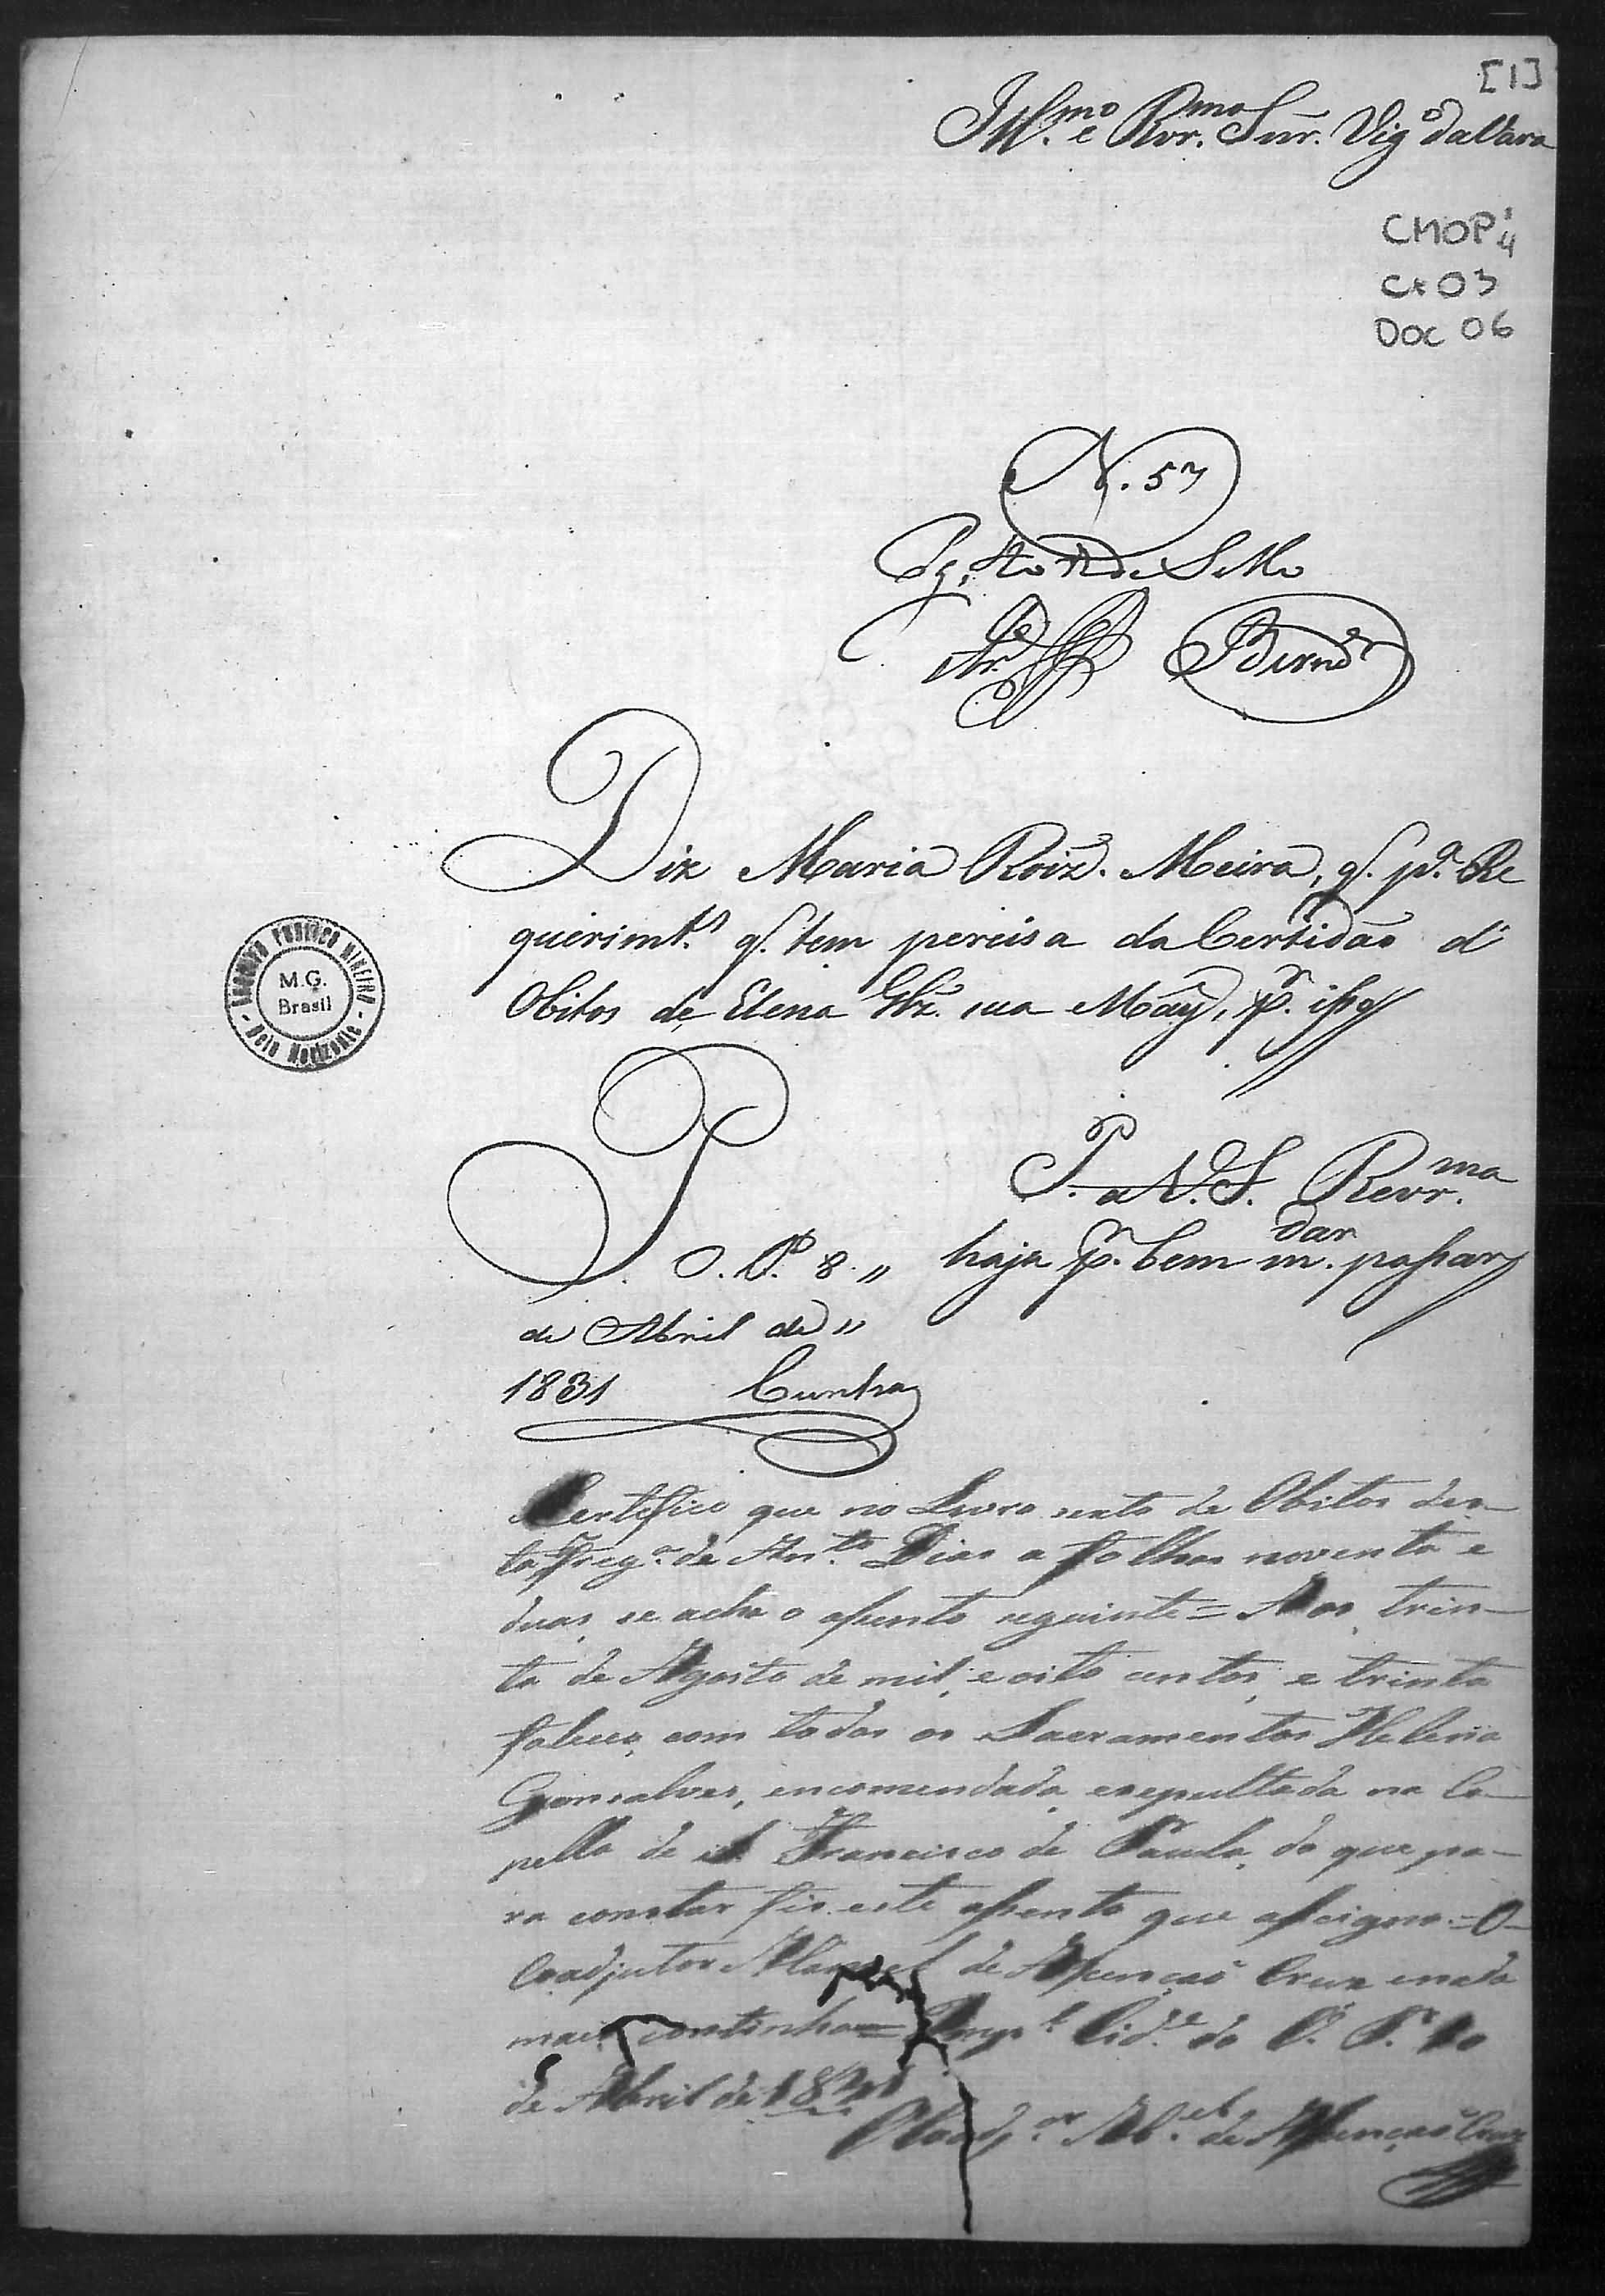 [1]
Ill.mo e Rvr.mo Snr. Vig.o da Vara
CMOP 4
Cx 03
Doc 06
N. 57
Pg. de Sello
Diz Maria Roiz. Meira, q. p.a Re
querimt.s q. tem percisa da Certidão d'
Obitos de Elena Glz. sua Mãy, p.r isso
ARQUIVO PUBLICO MINEIRO
M.G.
Brasil
- Belo Horizonte -
P. a V. S. Revr.ma
haja p.r bem m.dar passar
P. O. P. 8 "
de Abril de "
1831 Cunha
Certifico que no Livro sexto de Obitos des-
ta Freg.a de Ant.o Dias a folhas noventa e
duas se acha o assento seguinte = Aos trin-
ta de Agosto de mil, e oito centos, e trinta
faleceo com todos os Sacramentos Helena
Gonsalves, encomendada, e sepultada na Ca-
pella de S. Francisco de Paula, do que pa-
ra constar fis este assento que assigno = O
Coadjutor Manoel de Assunçaõ Cruz e nada
mais continha = Imp.l Cid.e do O. P. 10
de Abril de 1831
O Coadj.or M.el de Assunçaõ Cruz